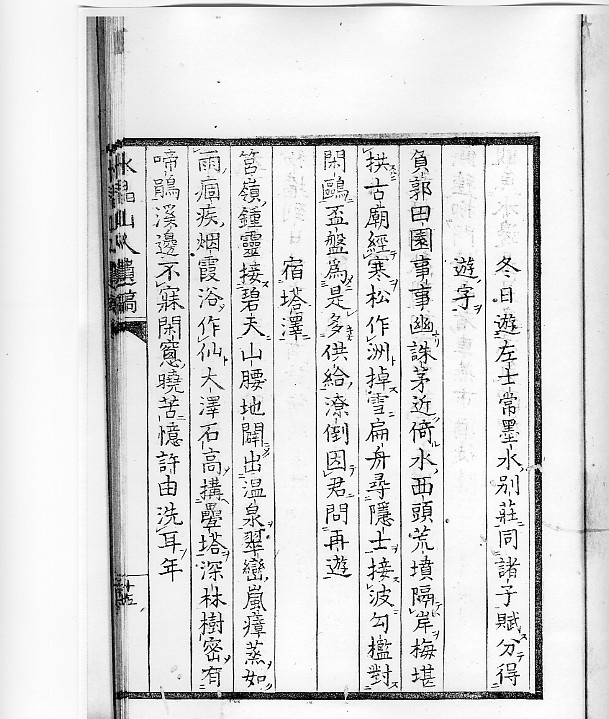 冬日遊左士常墨水別莊同諸子賦分得
遊字
負郭田園事事幽誅茅近倚水西頭荒墳隔岸梅堪
拱古廟經寒松作洲掉雪扁舟尋隱士接波勾檻對
閑鷗盃盤爲是多供給潦倒因君問再遊
宿塔澤
筥嶺鍾靈接碧天山腰地闢出温泉翠巒嵐瘴蒸如
雨痼疾烟霞浴作仙大澤石高搆壘塔深林樹密有
啼鵑溪邊不寐閑窓曉苦憶許由洗耳年
水晶山人遺稿